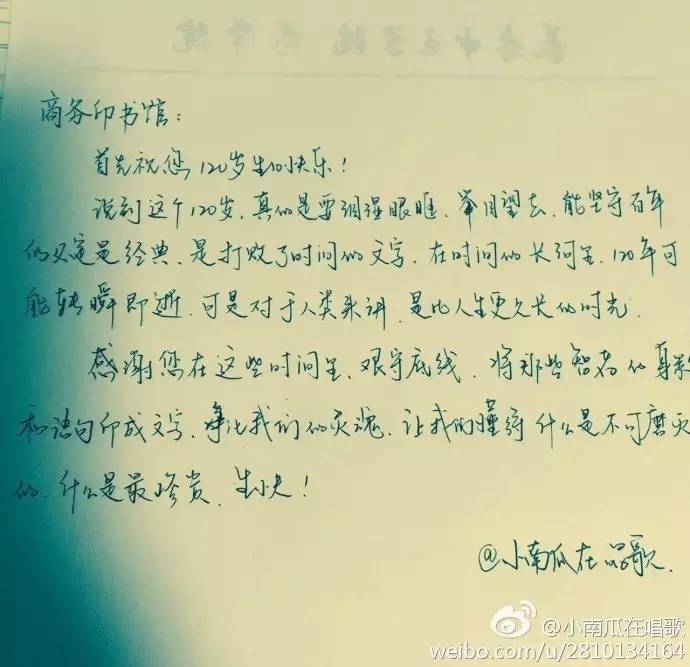 商务印书馆：
首先祝您120岁生日快乐！
说到这个120岁，真的是要湿湿眼眶，举目望去，能坚守百年
的必定是经典，是打败了时间的文字，在时间的长河里，120年可
能转瞬即逝，可是对于人类来讲，是比人生更久长的时光。
感谢您在这些时间里，坚守底线，将那些智者的身影
和语句印成文字，净化我们的灵魂，让我们懂得什么是不可磨灭
的，什么是最珍贵，生快！
@小南瓜在唱歌
@小南瓜在唱歌
weibo.com/u/2810134164